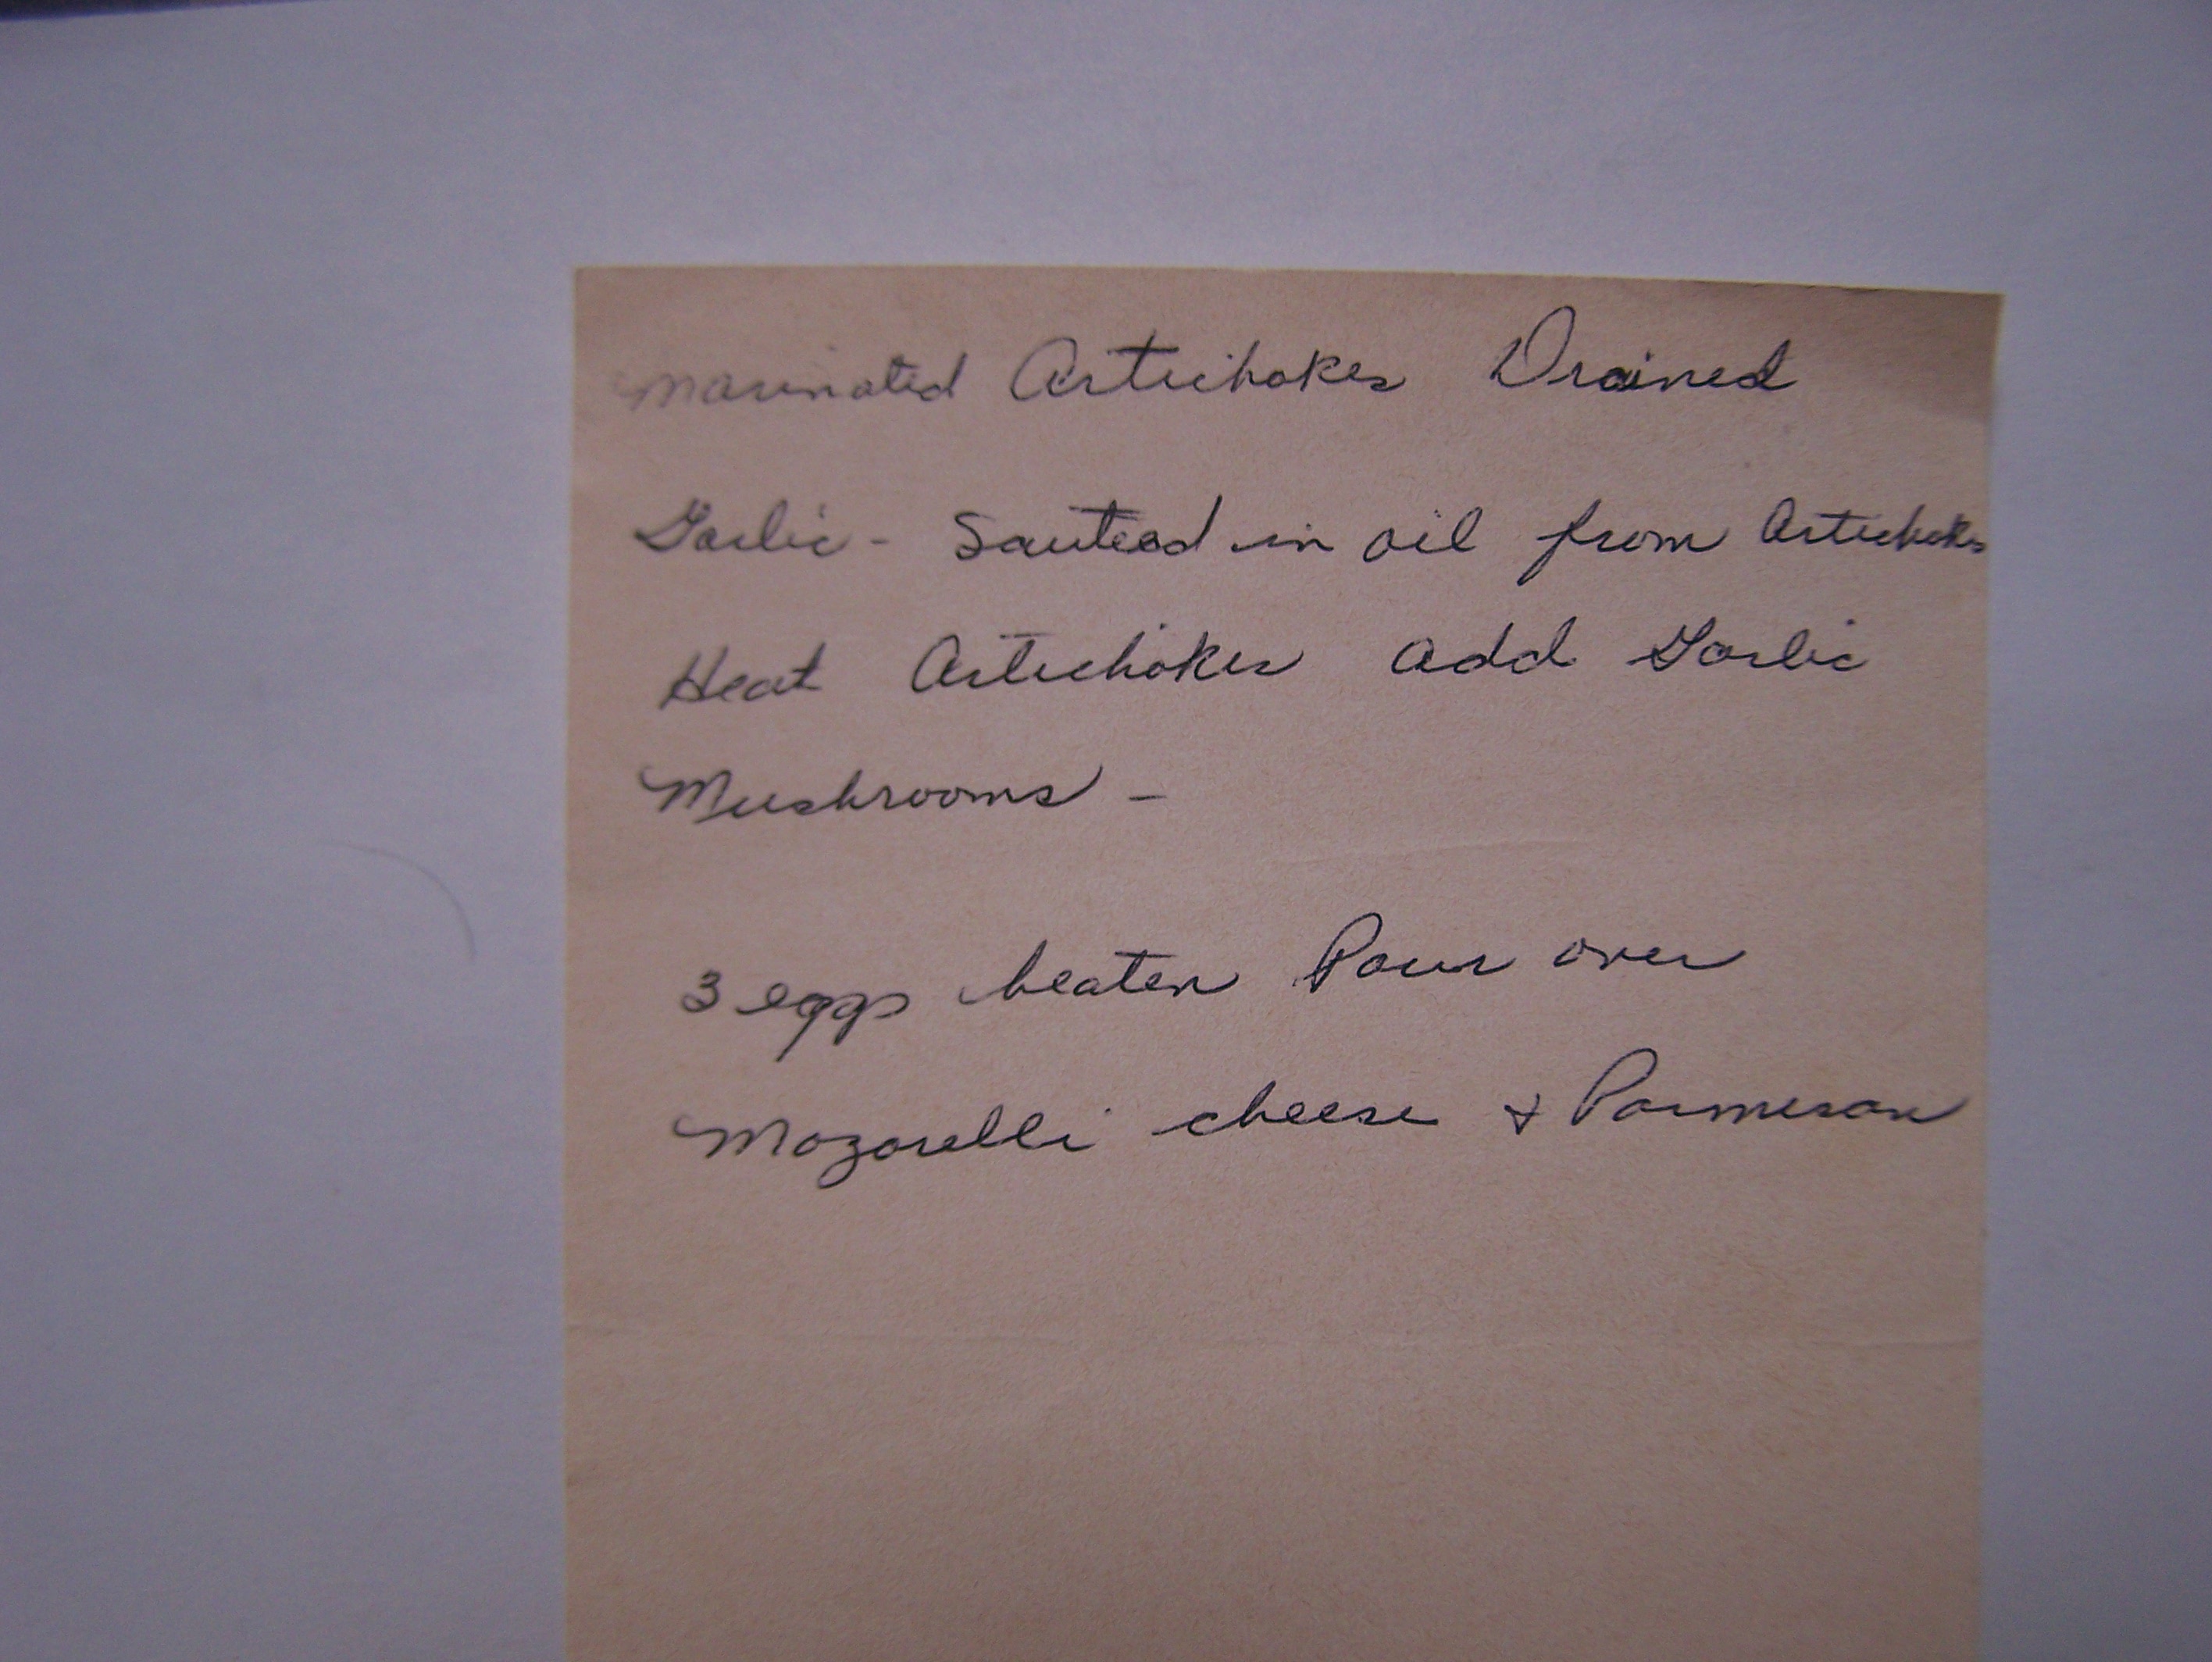 Marinated Artichokes Drained
Garlic - Sauteed in oil from Artichokes
Heat Artichokes add Garlic
Mushrooms -
3 eggs beaten Pour over
Mozarelli cheese & Parmesan